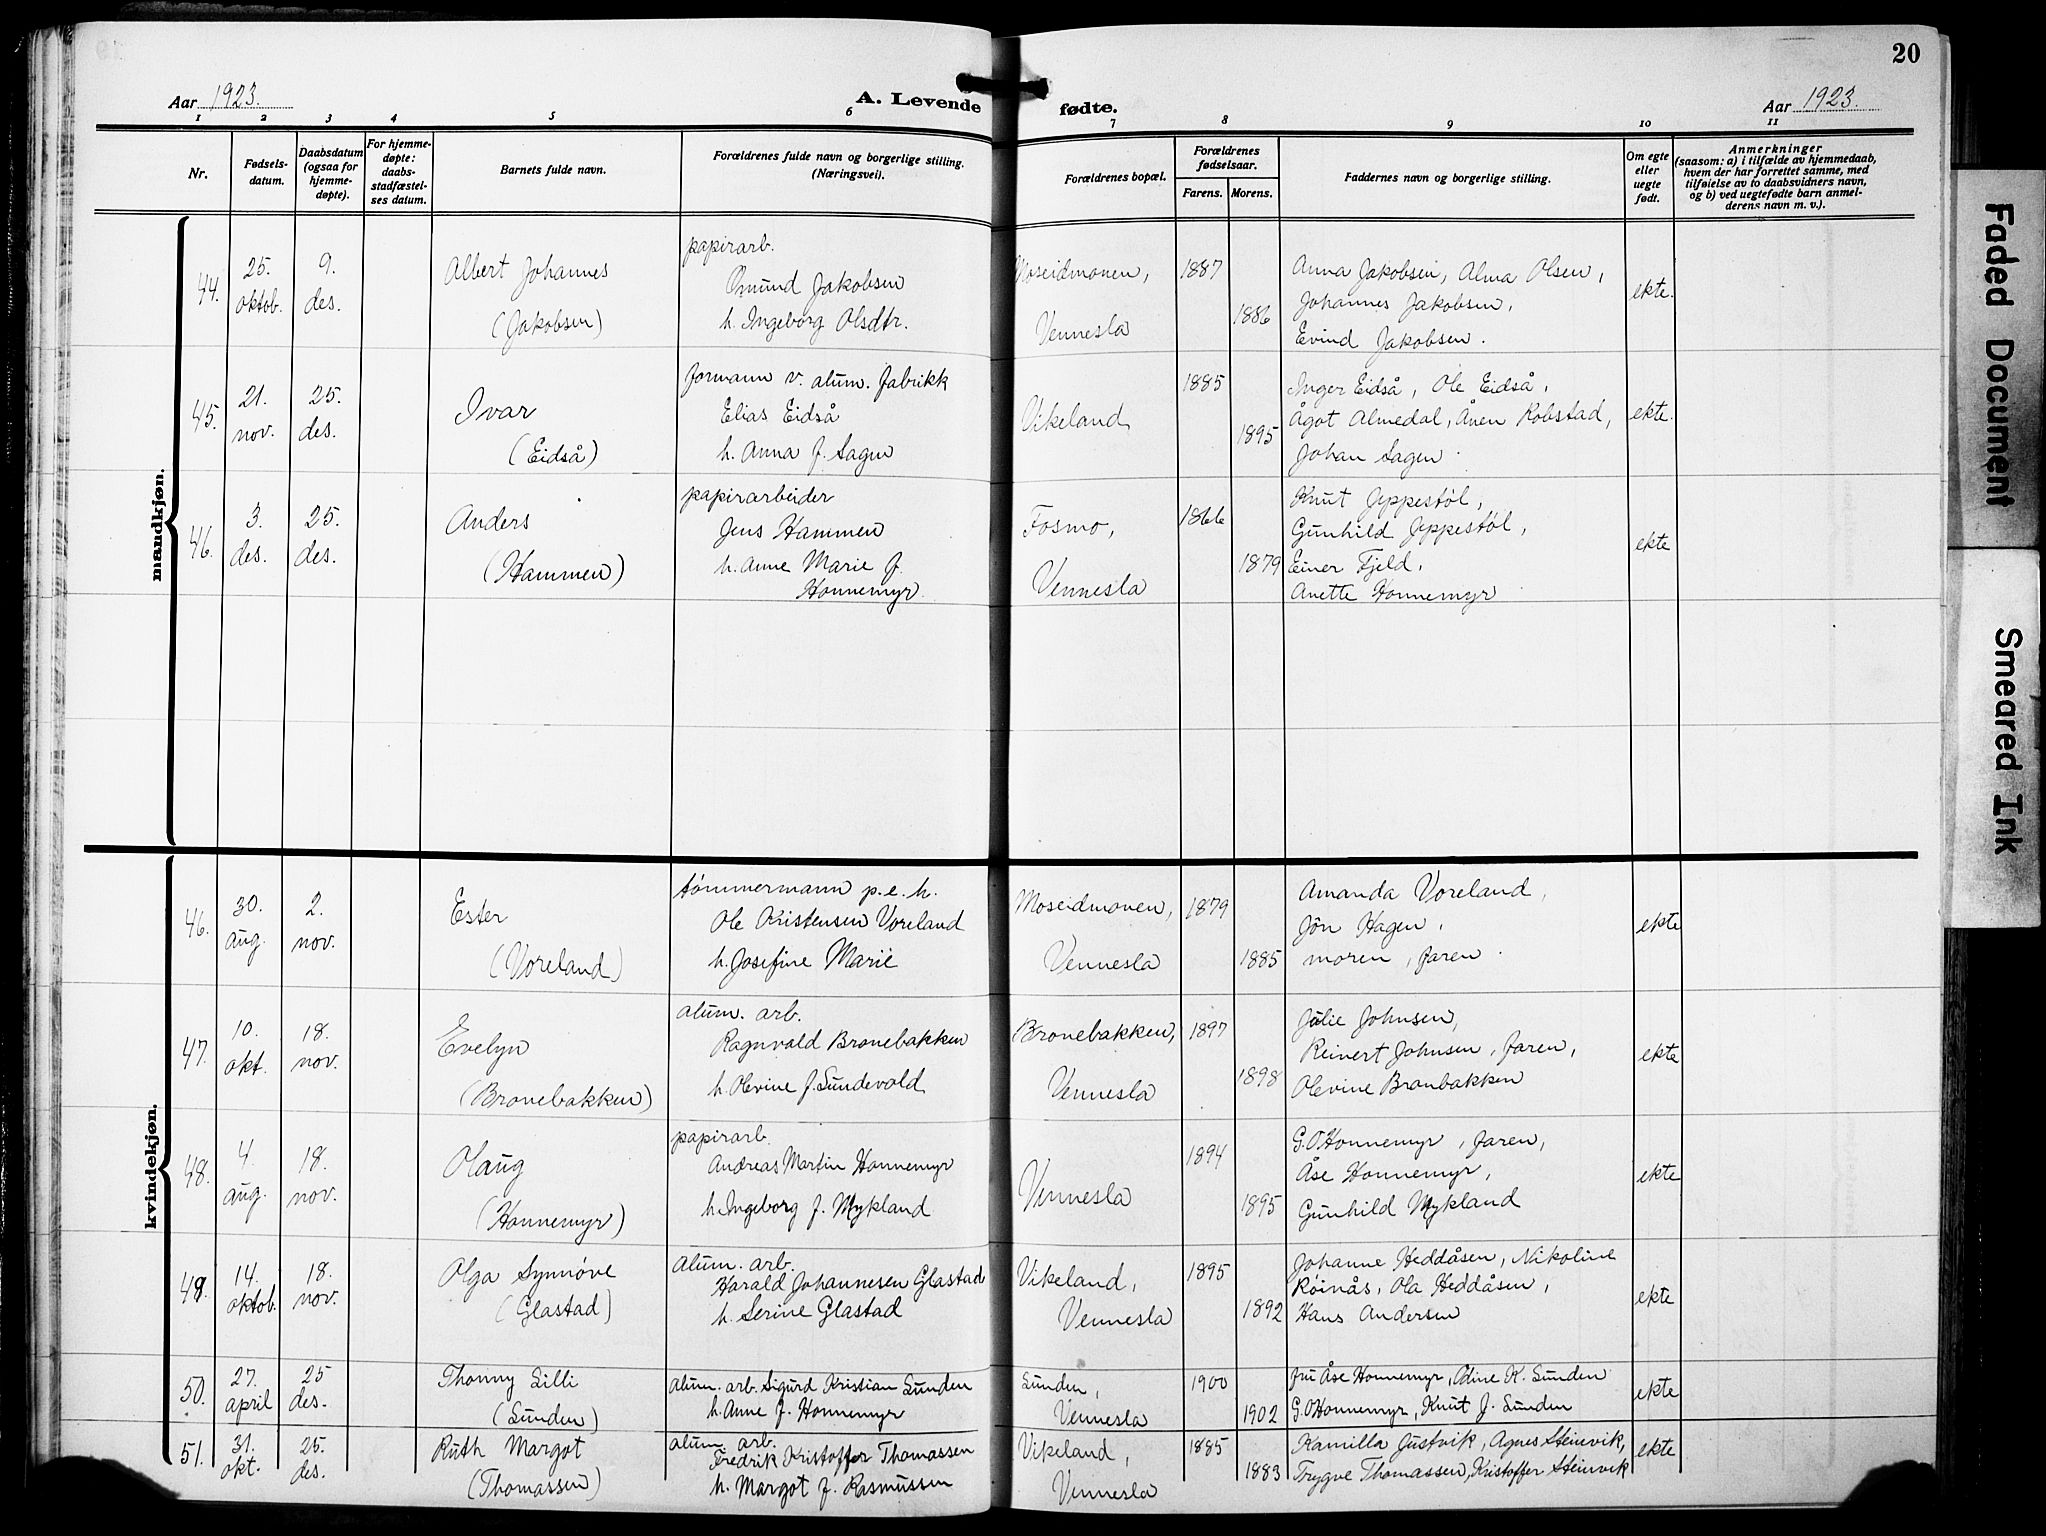 20
Aar 1923.
A. Levende fødte.
Aar 1923.
1 2 3 4 5 6 7 8 9 10 11
Nr.
Fødsels-
datum.
Daabsdatum
(ogsaa for
hjemme-
døpte).
For hjemme-
døpte:
daabs-
stadfæstel-
ses datum.
Barnets fulde navn.
Forældrenes fulde navn og borgerlige stilling.
(Næringsvei).
Forældrenes bopæl.
Forældrenes
fødselsaar.
Farens. Morens.
Faddernes navn og borgerlige stilling.
Om egte
eller
uegte
født.
Anmerkninger
(saasom: a) i tilfælde av hjemmedaab,
hvem der har forrettet samme, med
tilføielse av to daabsvidners navn,
og b) ved uegtefødte barn anmel-
derens navn m. v.).
mandkjøn.
44.
25.
oktob.
9.
des.
Albert Johannes
(Jakobsen)
papirarb.
Omund Jakobsen
h. Ingeborg Olsdtr.
Moseidmonen,
Vennesla
1887
1886
Anna Jakobsen, Alma Olsen,
Johannes Jakobsen,
Evind Jakobsen.
ekte.
45.
21.
nov.
25.
des.
Ivar
(Eidså)
formann v. alum. fabrikk
Elias Eidså
h. Anna f. Sagen
Vikeland
1885
1895
Inger Eidså, Ole Eidså,
Ågot Almedal, Ånen Robstad,
Johan Sagen
ekte.
46.
3.
des.
25.
des.
Anders
(Hammen)
papirarbeider
Jens Hammen
h. Anne Marie f.
Honnemyr
Fosmo,
Vennesla
1866
1879
Knut Jeppestøl,
Gunhild Jeppestøl,
Einer Fjeld,
Anette Honnemyr
ekte
kvindekjøn.
46.
30.
aug.
2.
nov.
Ester
(Voreland)
tømmermann p.e.h.
Ole Kristensen Voreland
h. Josefine Marie
Moseidmonen,
Vennesla
1879
1885
Amanda Voreland,
Jôn Hagen,
moren, faren.
ekte
47.
10.
okt.
18.
nov.
Evelyn
(Bronebakken)
alum. arb.
Ragnvald Bronebakken
h. Olevine f. Sundevold
Bronebakken,
Vennesla
1897
1898
Julie Johnsen,
Reinert Johnsen, faren,
Olevine Bronbakken
ekte
48.
4.
aug.
18.
nov.
Olaug
(Honnemyr)
papirarb.
Andreas Martin Honnemyr
h. Ingeborg f. Mykland
Vennesla
1894
1895
G. O Honnemyr, faren,
Åse Honnemyr,
Gunhild Mykland
ekte
49.
14.
oktob.
18.
nov.
Olga Synnøve
(Glastad)
Alum. arb.
Harald Johannesen Glastad
h. Serine Glastad
Vikeland,
Vennesla
1895
1892
Johanne Heddåsen, Nikoline
Røinås, Ola Heddåsen,
Hans Andersen
ekte
50.
27.
april
25
des.
Thonny Lilli
(Sunden)
Alum. arb. Sigurd Kristian Sunden
h. Anne f. Honnemyr
Sunden,
Vennesla
1900
1902
fru Åse Honnemyr, Odine K. Sunden
G. O Honnemyr, Knut J. Sunden
ekte
51.
31.
okt.
25.
des.
Ruth Margot
(Thomassen)
alum. arb.
Fredrik Kristoffer Thomassen
h. Margot f. Rasmussen
Vikeland,
Vennesla
1885
1883
Kamilla Justvik, Agnes Steinvik,
Trygve Thomassen, Kristoffer Steinvik
ekte
Faded Document
Smeared Ink